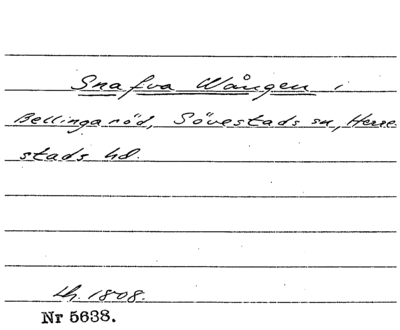 Snafva Wången i
Bellingaröd, Sövestads sn, Herre-
stads hd.
Lh. 1808.
Nr 5638.